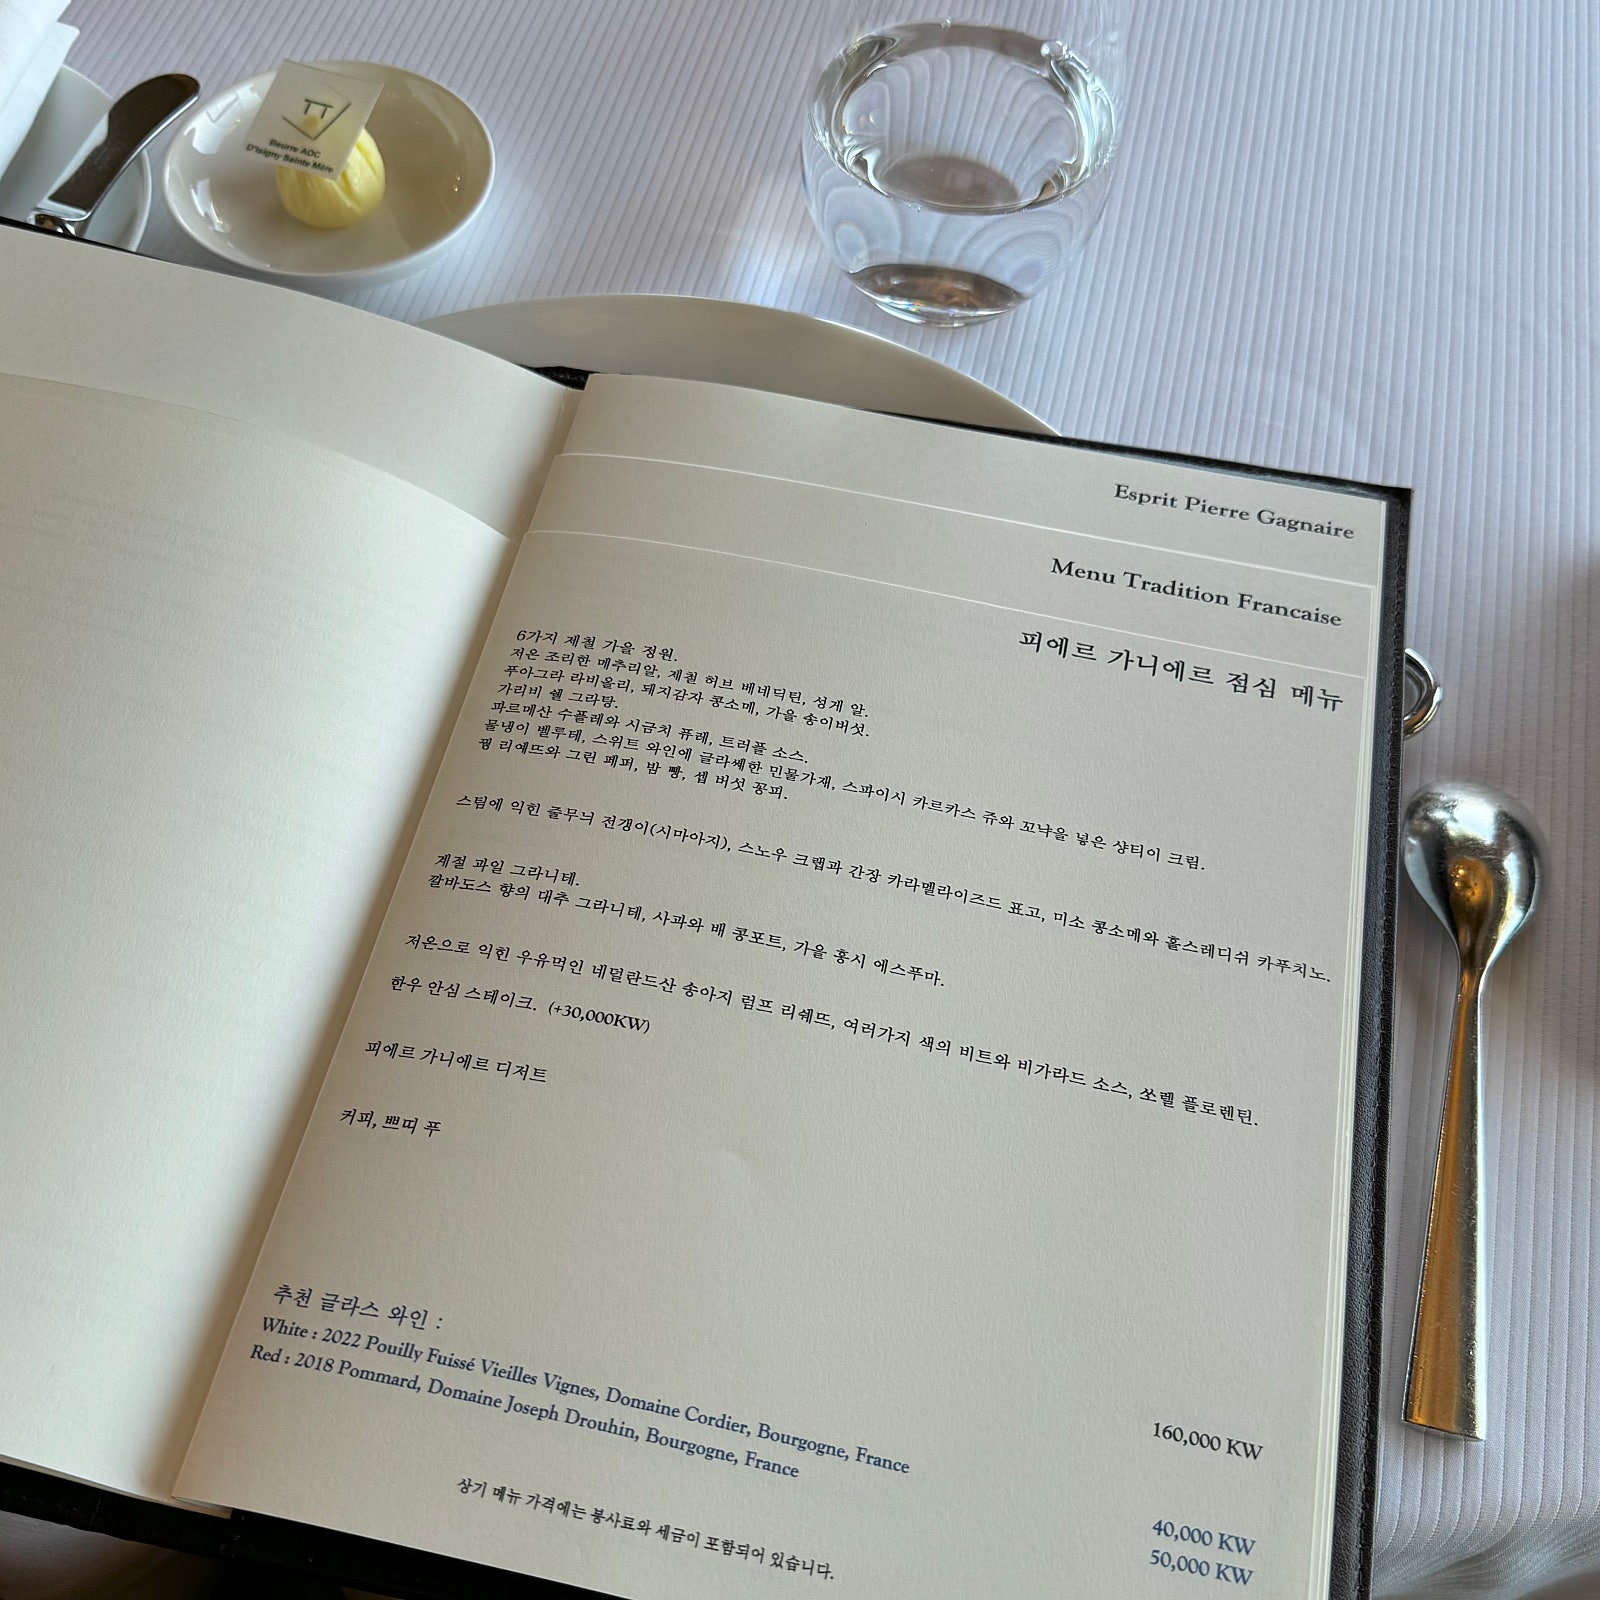 TT
Beurre AOC
D'Isigny Sainte Mère
Esprit Pierre Gagnaire
Menu Tradition Francaise
피에르 가니에르 점심 메뉴
6가지 제철 가을 정원.
저온 조리한 메추리알, 제철 허브 베네딕틴, 성게 알.
푸아그라 라비올리, 돼지감자 콩소메, 가을 송이버섯.
가리비 쉘 그라탕.
파르메산 수플레와 시금치 퓨레, 트러플 소스.
물냉이 벨루테, 스위트 와인에 글라쎄한 민물가재, 스파이시 카르카스 쥬와 꼬냑을 넣은 샹티이 크림.
꿩 리예뜨와 그린 페퍼, 밤 빵, 셉 버섯 꽁피.
스팀에 익힌 줄무늬 전갱이(시마아지), 스노우 크랩과 간장 카라멜라이즈드 표고, 미소 콩소메와 홀스레디쉬 카푸치노.
계절 과일 그라니테.
깔바도스 향의 대추 그라니테, 사과와 배 콩포트, 가을 홍시 에스푸마.
저온으로 익힌 우유먹인 네덜란드산 송아지 럼프 리쉐뜨, 여러가지 색의 비트와 비가라드 소스, 쏘렐 플로렌틴.
한우 안심 스테이크. (+30,000KW)
피에르 가니에르 디저트
커피, 쁘띠 푸
160,000 KW
추천 글라스 와인 :
White : 2022 Pouilly Fuissé Vieilles Vignes, Domaine Cordier, Bourgogne, France 40,000 KW
Red : 2018 Pommard, Domaine Joseph Drouhin, Bourgogne, France 50,000 KW
상기 메뉴 가격에는 봉사료와 세금이 포함되어 있습니다.